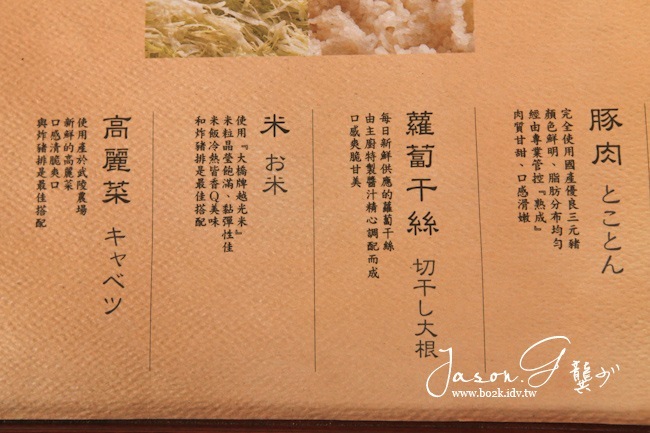 豚肉 とことん
完全使用國產優良三元豬
顏色鮮明、脂肪分布均勻
經由專業管控『熟成』
肉質甘甜、口感滑嫩
蘿蔔干絲 切干し大根
每日新鮮供應的蘿蔔干絲
由主廚特製醬汁精心調配而成
口感爽脆甘美
米 お米
使用『大橋牌越光米』
米粒晶瑩飽滿、黏彈性佳
米飯冷熱皆香Q美味
和炸豬排是最佳搭配
高麗菜 キャベツ
使用產於武陵農場
新鮮的高麗菜
口感清脆爽口
與炸豬排是最佳搭配
Jason.G 龔的
www.bo2k.idv.tw